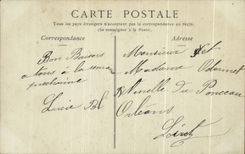 CARTE POSTALE
Tous les pays étrangers n'acceptent pas la correspondance au recto.
(Se renseigner à la Poste).
Correspondance
Adresse
Bon Baisers
à tous à la
prochaine
Lucie
Monsieur et
Madame
du
Orléans
Loiret